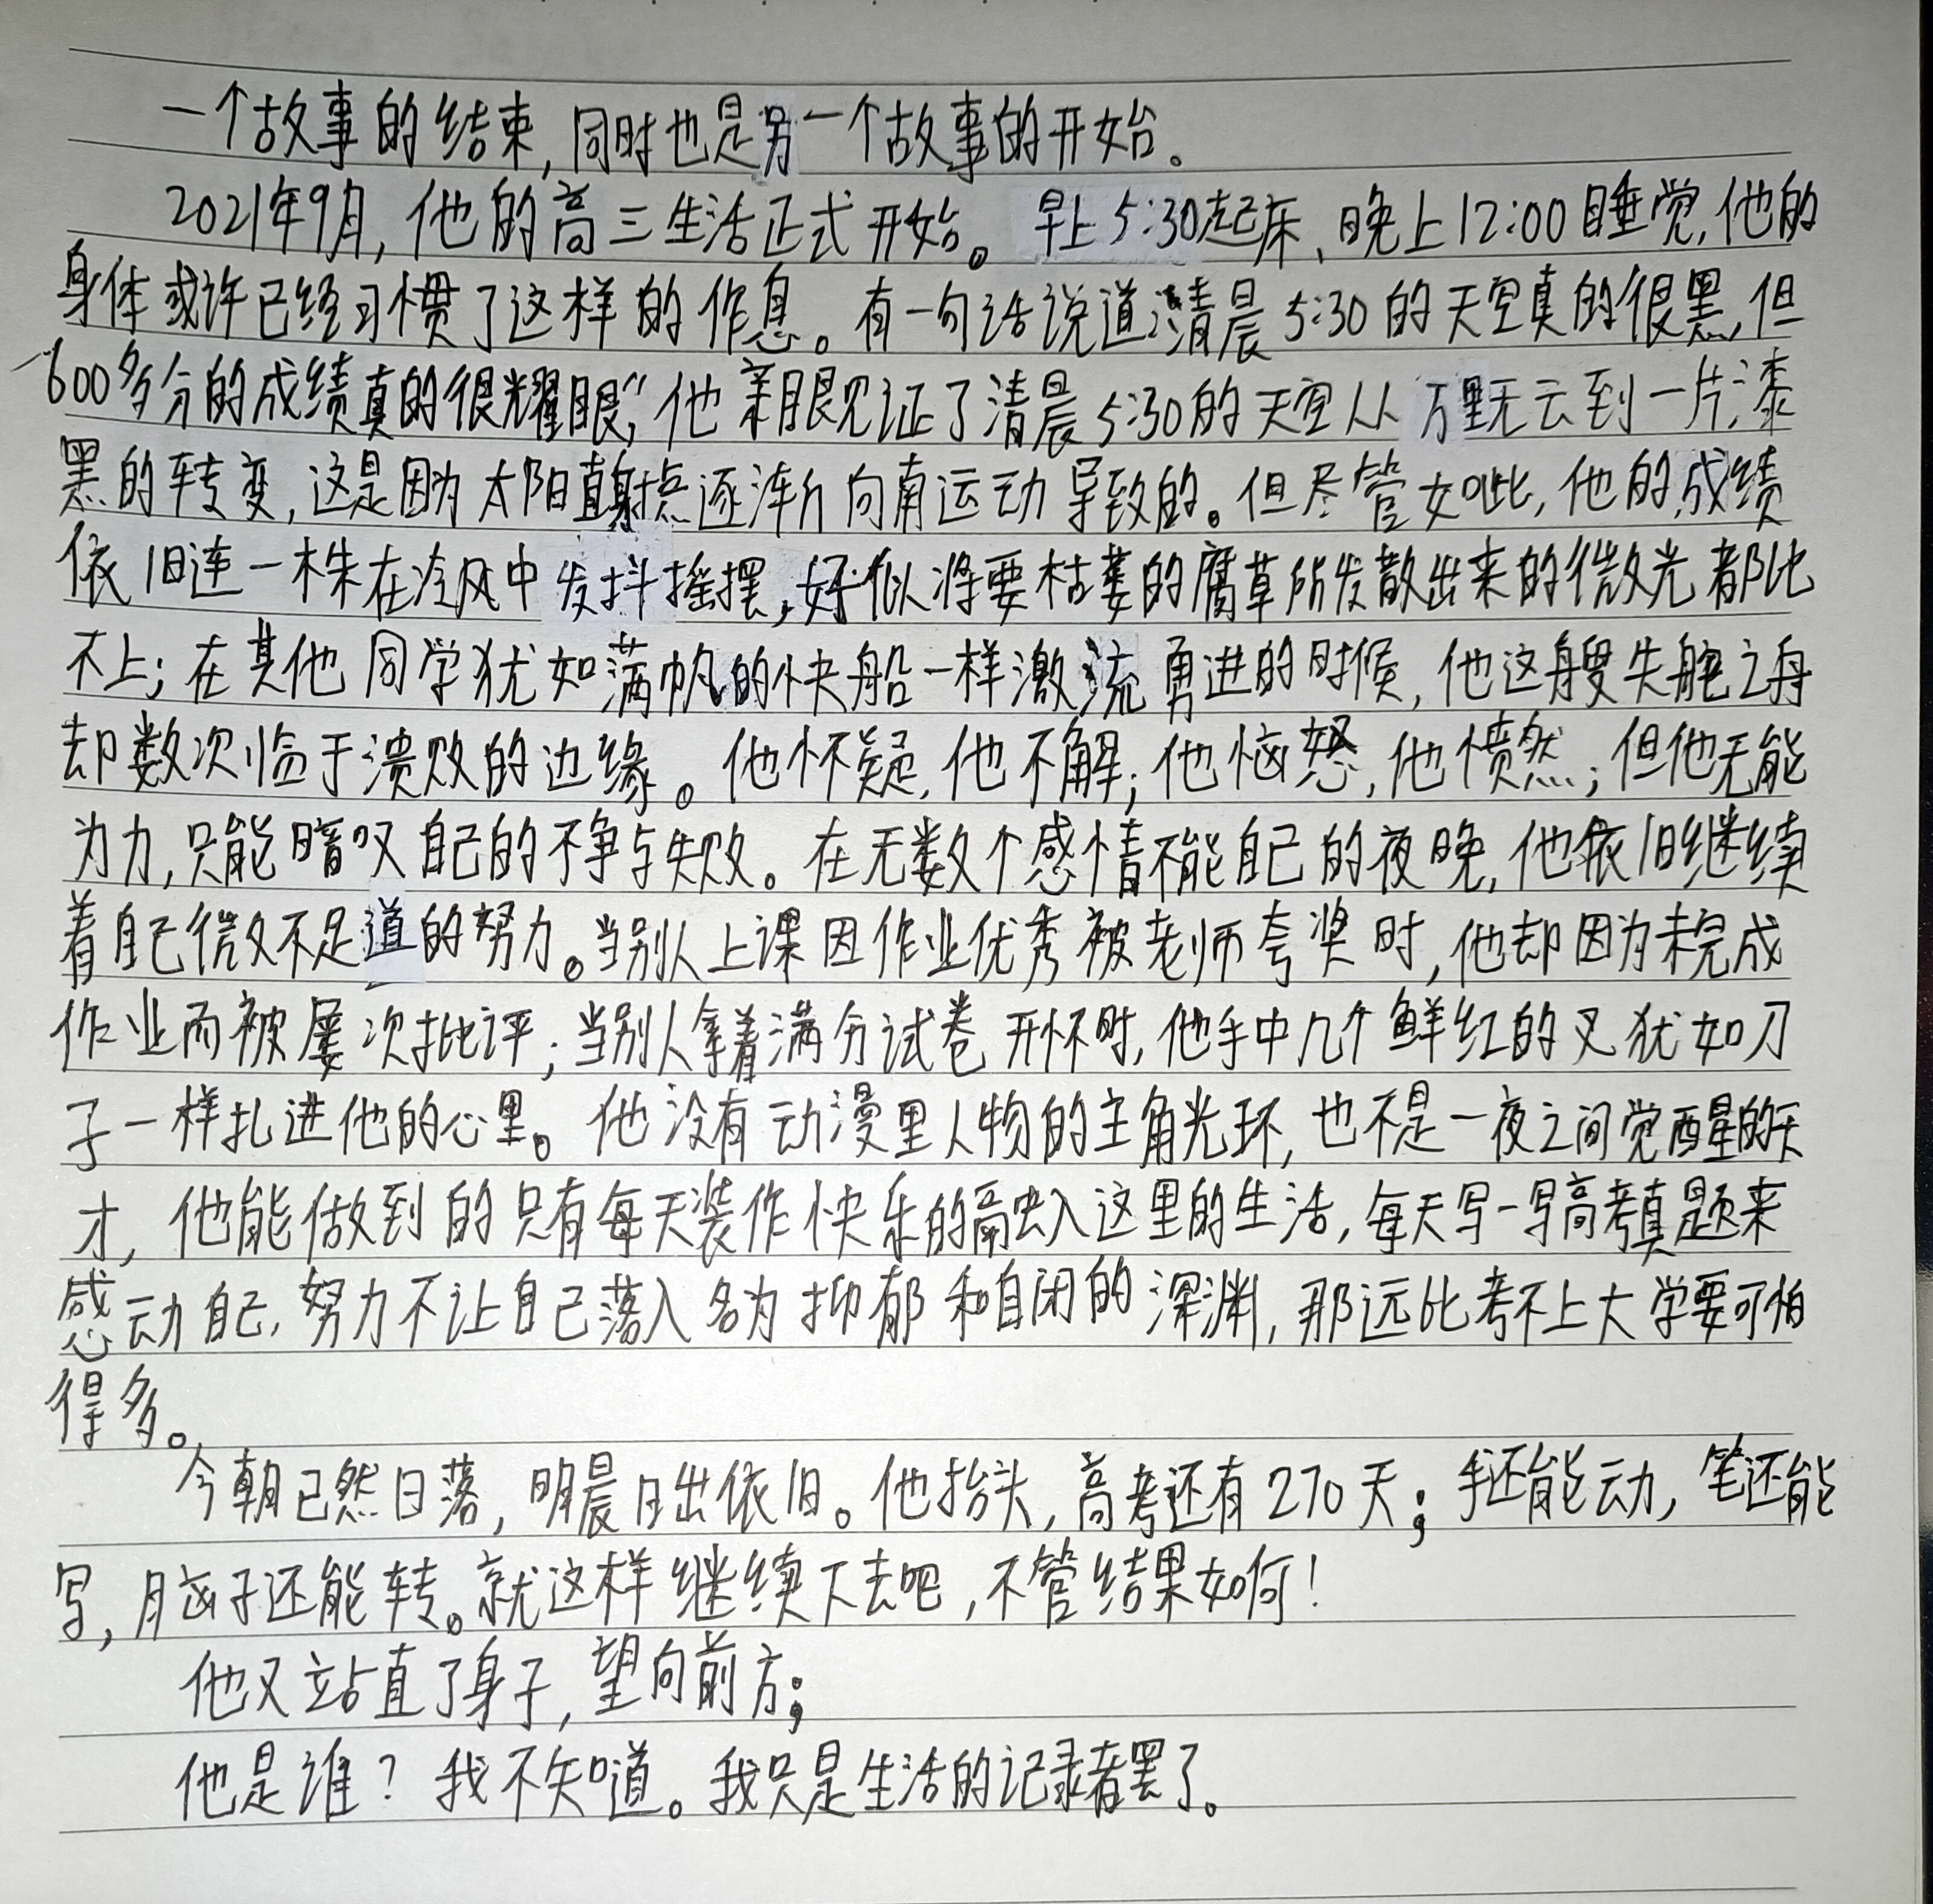 一个故事的结束,同时也是另一个故事的开始。
2021年9月,他的高三生活正式开始。早上5:30起床、晚上12:00睡觉,他的
身体或许已经习惯了这样的作息。有一句话说道:清晨5:30的天空真的很黑,但
600多分的成绩真的很耀眼”,他亲眼见证了清晨5:30的天空从万里无云到一片漆
黑的转变,这是因为太阳直射点逐渐向南运动导致的。但尽管如此,他的成绩
依旧连一株在冷风中发抖摇摆,好似将要枯萎的腐草所发散出来的微光都比
不上;在其他同学犹如满帆的快船一样激流勇进的时候,他这艘失舵之舟
却数次临于溃败的边缘。他怀疑,他不解;他恼怒,他愤然;但他无能
为力,只能暗叹自己的不争与失败。在无数个感情不能自已的夜晚,他依旧继续
着自己微不足道的努力。当别人上课因作业优秀被老师夸奖时,他却因为未完成
作业而被屡次批评;当别人拿着满分试卷开怀时,他手中几个鲜红的叉犹如刀
子一样扎进他的心里。他没有动漫里人物的主角光环,也不是一夜之间觉醒的天
才,他能做到的只有每天装作快乐的融入这里的生活,每天写一写高考真题来
感动自己,努力不让自己落入名为抑郁和自闭的深渊,那远比考不上大学要可怕
得多。
今朝已然日落,明晨日出依旧。他抬头,高考还有270天;手还能动,笔还能
写,脑子还能转。就这样继续下去吧,不管结果如何!
他又站直了身子,望向前方;
他是谁?我不知道。我只是生活的记录者罢了。